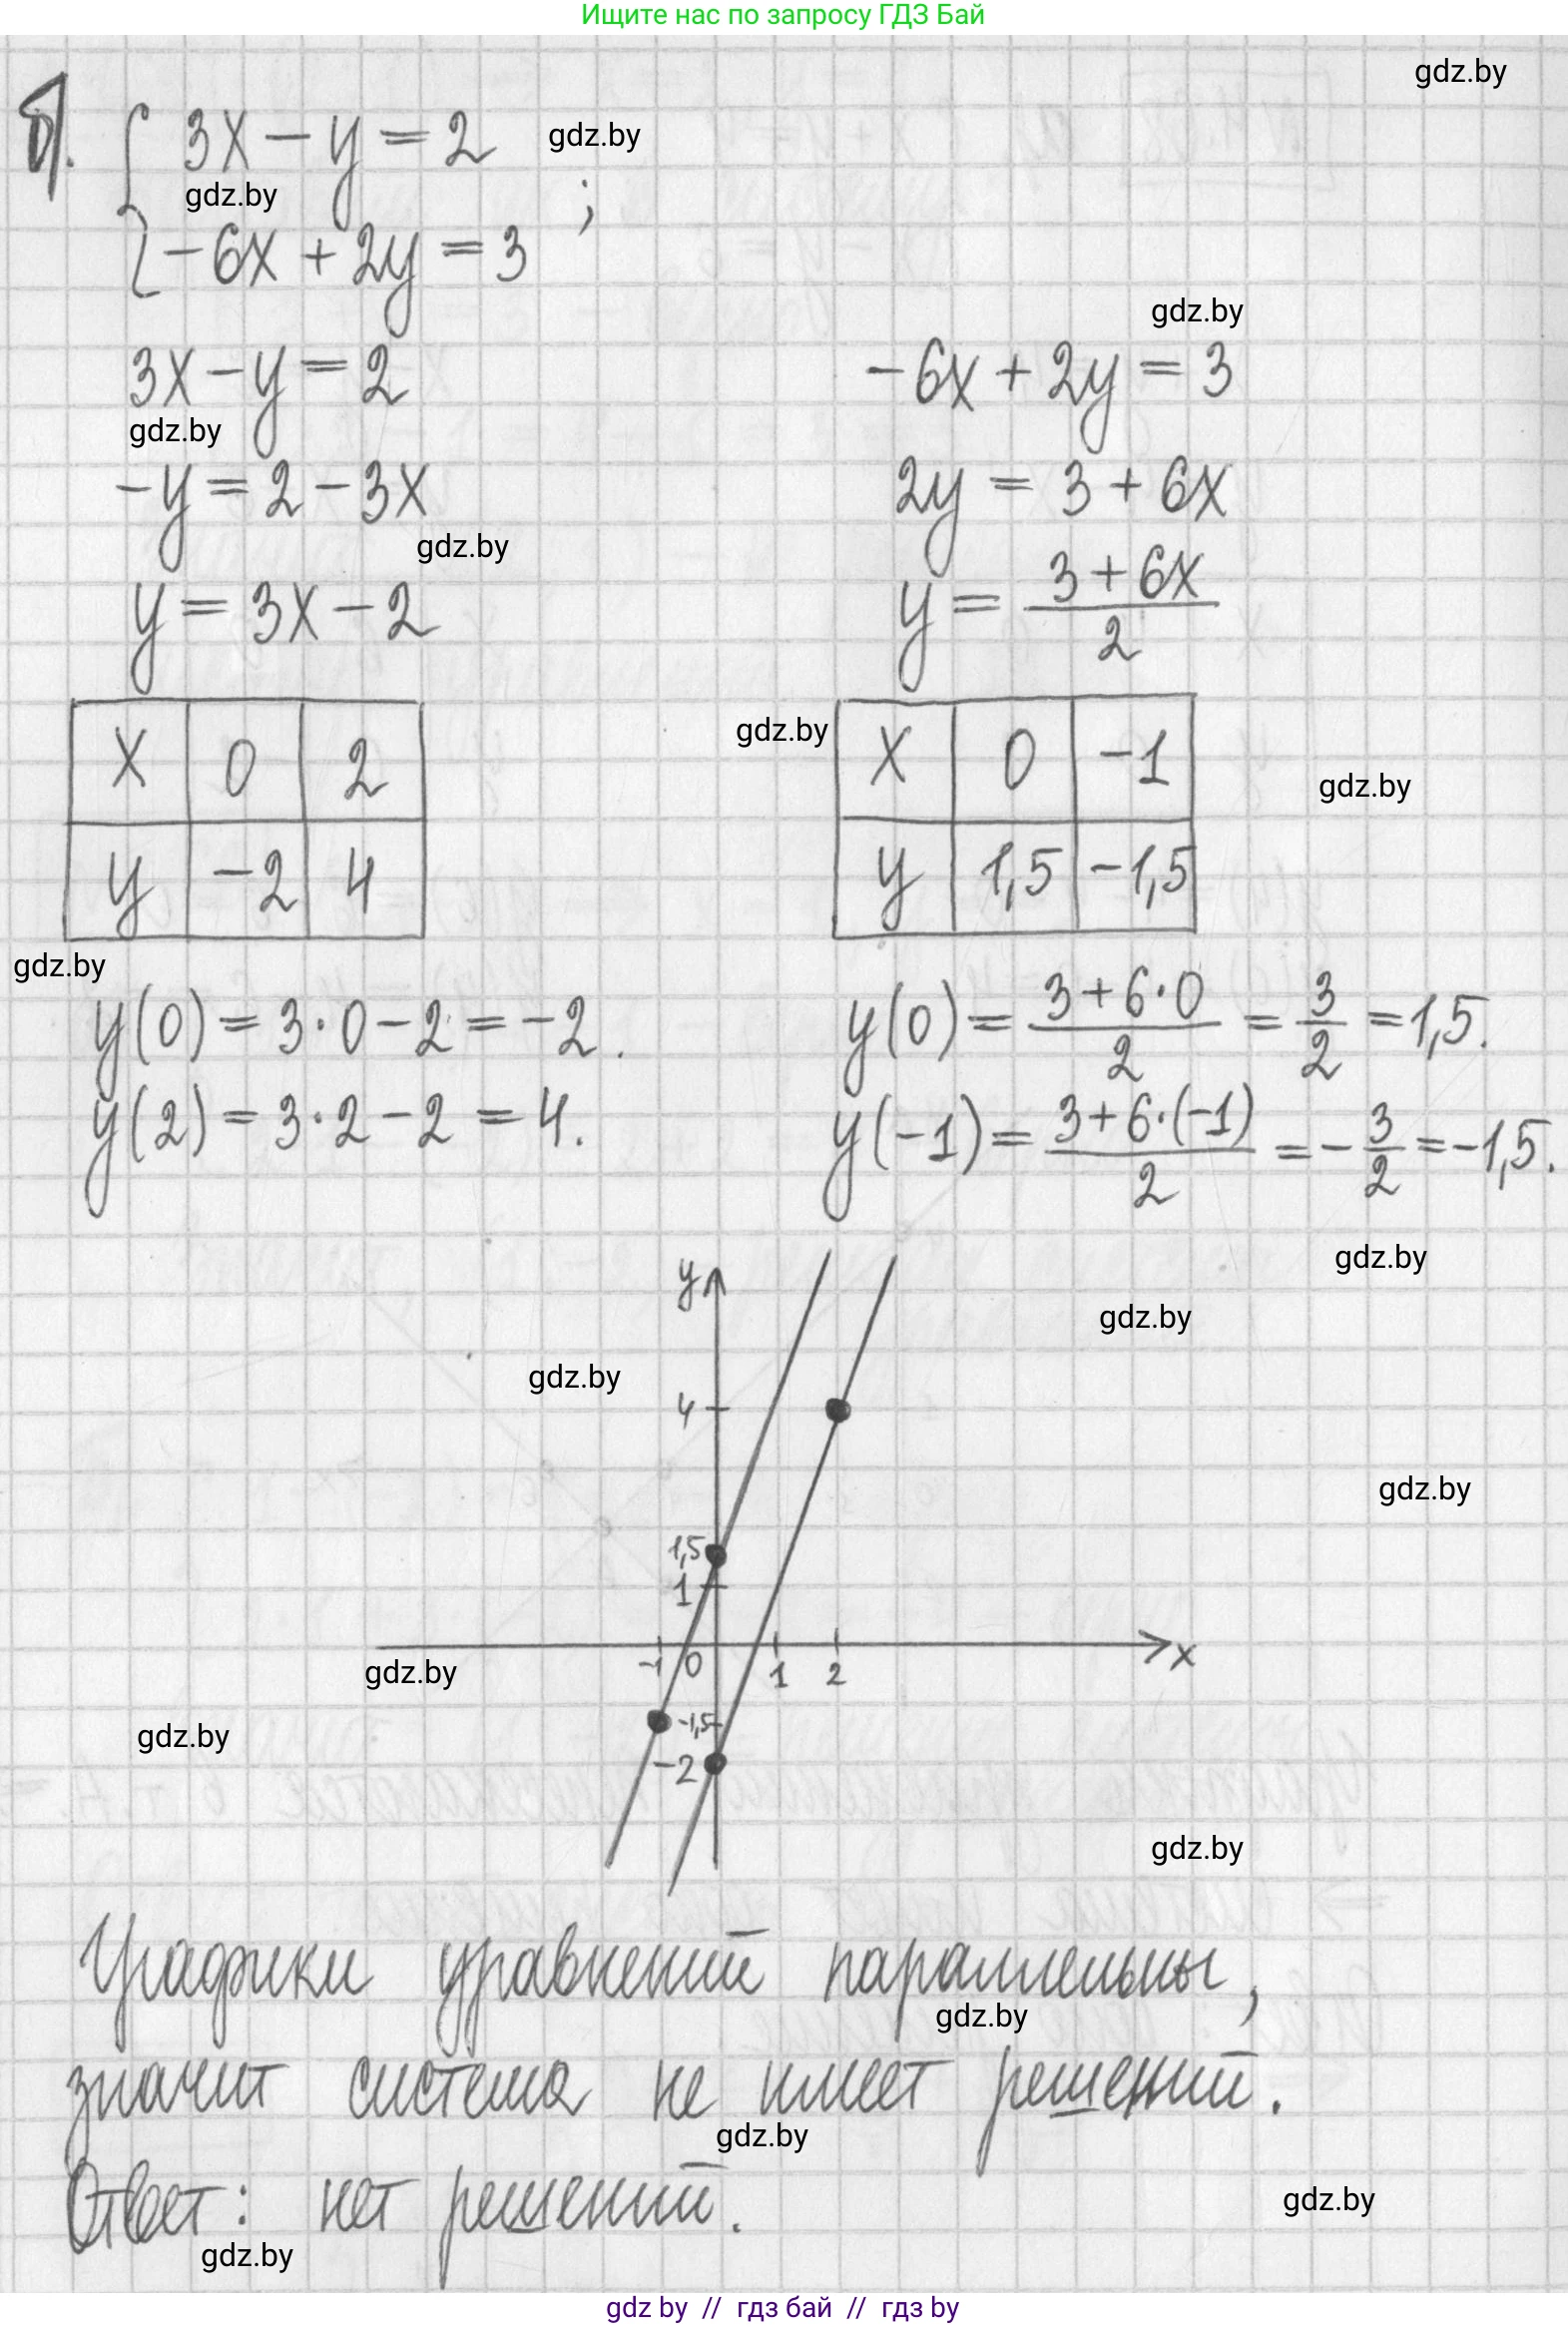 Ищите нас по запросу ГДЗ Бай
gdz.by
б). { 3x - y = 2
gdz.by
gdz.by
- 6x + 2y = 3 ;
gdz.by
3x - y = 2
- 6x + 2y = 3
gdz.by
- y = 2 - 3x
2y = 3 + 6x
gdz.by
y = 3x - 2
y = (3 + 6x)/2
x 0 2
gdz.by
x 0 -1
gdz.by
y -2 4
y 1,5 -1,5
gdz.by
y(0) = 3·0 - 2 = -2.
y(0) = (3+6·0)/2 = 3/2 = 1,5.
y(2) = 3·2 - 2 = 4.
y(-1) = (3+6·(-1))/2 = -3/2 = -1,5.
gdz.by
y
gdz.by
gdz.by
4
gdz.by
1,5
1
x
-1 0 1 2
gdz.by
-1,5
gdz.by
-2
gdz.by
Графики уравнений параллельны,
gdz.by
значит система не имеет решений.
gdz.by
Ответ: нет решений.
gdz.by
gdz.by
gdz by // гдз бай // гдз by